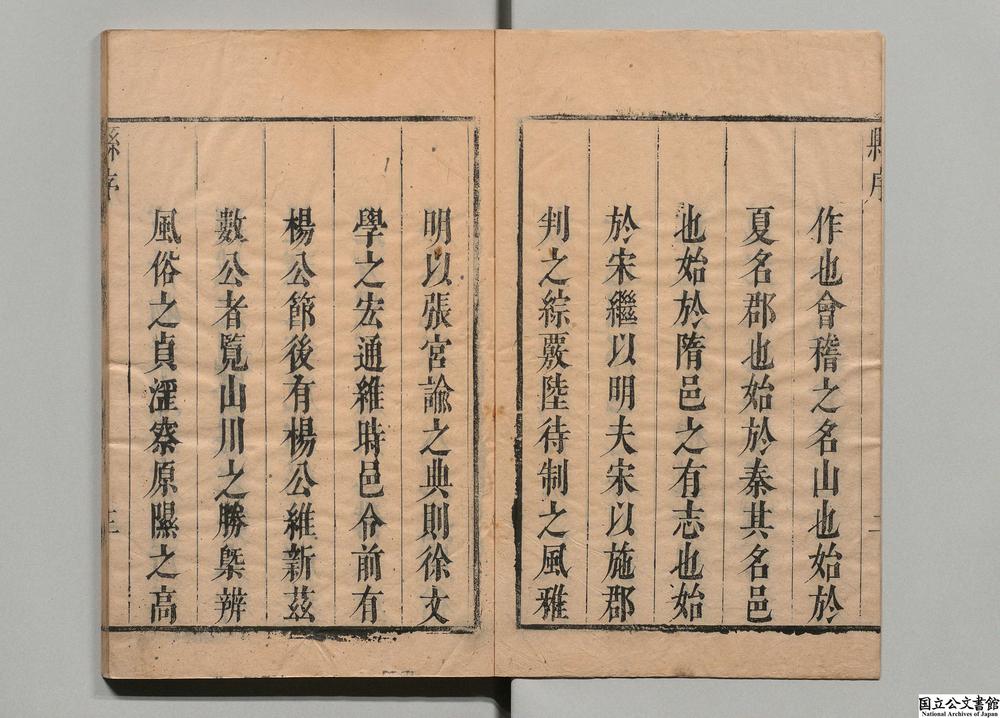 作也會稽之名山也始於
夏名郡也始於秦其名邑
也始於隋邑之有志也始
於宋繼以明夫宋以施郡
判之綜覈陸待制之風雅
明以張宮諭之典則徐文
學之宏通維時邑令前有
楊公節後有楊公維新茲
數公者覽山川之勝槩辨
風俗之貞淫察原隰之高
縣序
三
国立公文書館
National Archives of Japan